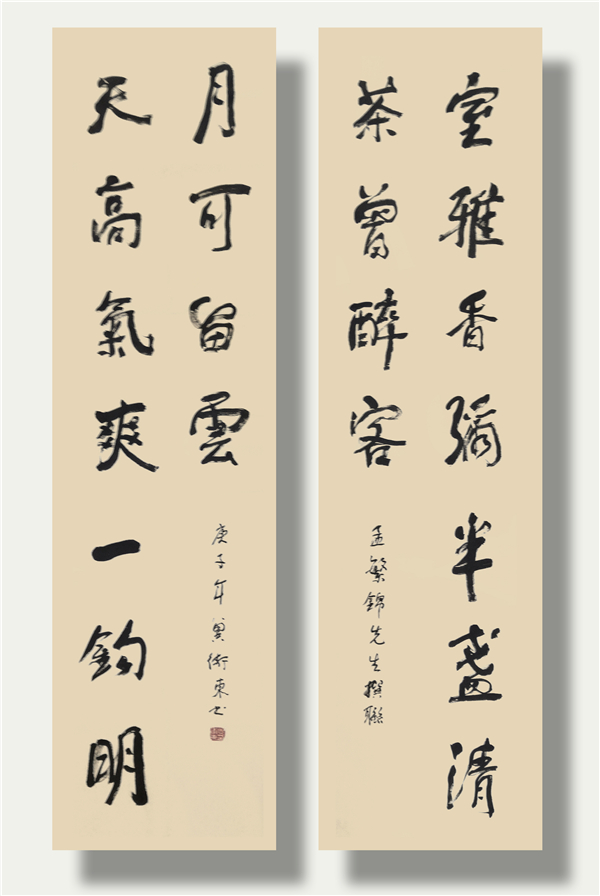 室雅香彌半盞清
茶曾醉客
孟繁錦先生撰聯
天高氣爽一鈎明
月可留雲
庚子年冀衛東书